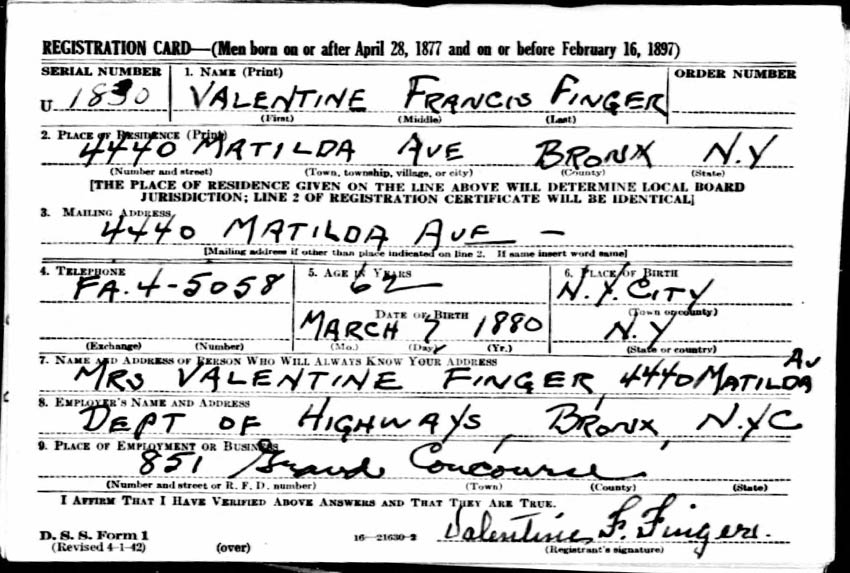 REGISTRATION CARD—(Men born on or after April 28, 1877 and on or before February 16, 1897)
SERIAL NUMBER 1. NAME (Print) ORDER NUMBER
U 1830 VALENTINE FRANCIS FINGER
(First) (Middle) (Last)
2. PLACE OF RESIDENCE (Print)
4440 MATILDA AVE BRONX N.Y
(Number and street) (Town, township, village, or city) (County) (State)
[THE PLACE OF RESIDENCE GIVEN ON THE LINE ABOVE WILL DETERMINE LOCAL BOARD
JURISDICTION; LINE 2 OF REGISTRATION CERTIFICATE WILL BE IDENTICAL]
3. MAILING ADDRESS
4440 MATILDA AVE —
[Mailing address if other than place indicated on line 2. If same insert word same]
4. TELEPHONE 5. AGE IN YEARS 6. PLACE OF BIRTH
FA. 4-5058 62 N.Y. CITY
DATE OF BIRTH (Town or county)
MARCH 7 1880 N.Y
(Exchange) (Number) (Mo.) (Day) (Yr.) (State or country)
7. NAME AND ADDRESS OF PERSON WHO WILL ALWAYS KNOW YOUR ADDRESS
MRS VALENTINE FINGER, 4440 MATILDA AV
8. EMPLOYER'S NAME AND ADDRESS
DEPT OF HIGHWAYS, BRONX, N.Y C
9. PLACE OF EMPLOYMENT OR BUSINESS
851 Grand Concourse
(Number and street or R. F. D. number) (Town) (County) (State)
I AFFIRM THAT I HAVE VERIFIED ABOVE ANSWERS AND THAT THEY ARE TRUE.
D. S. S. Form 1
(Revised 4-1-42) (over) 16—21630-2 Valentine F. Finger.
(Registrant's signature)